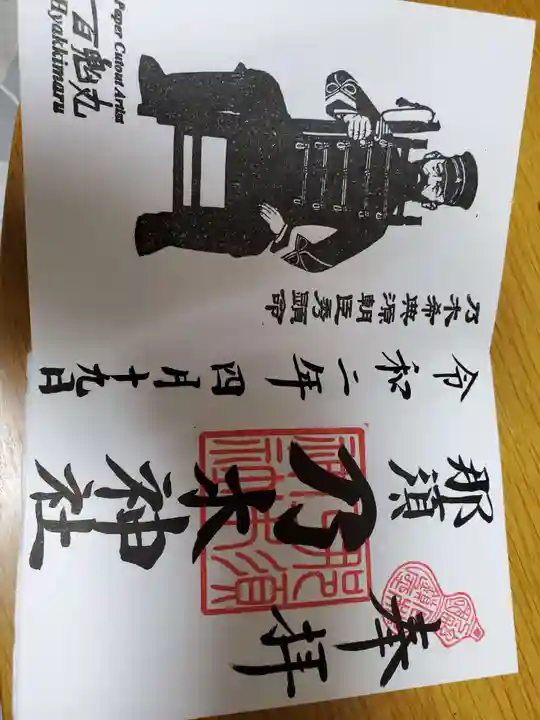 奉拝
那須
乃木神社
令和二年四月十九日
乃木希典源朝臣秀顕命
Paper Cutout Artist
百鬼丸
Hyakkimaru